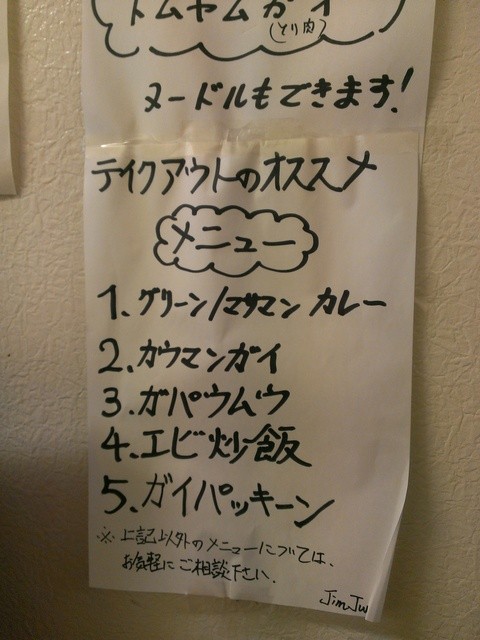 トムヤムガイ
(とり肉)
ヌードルもできます!
テイクアウトのオススメ
メニュー
1. グリーン/マサマン カレー
2. カウマンガイ
3. ガパウムウ
4. エビ炒飯
5. ガイパッキーン
※ 上記以外のメニューについては、
お気軽にご相談下さい.
Jim Jw